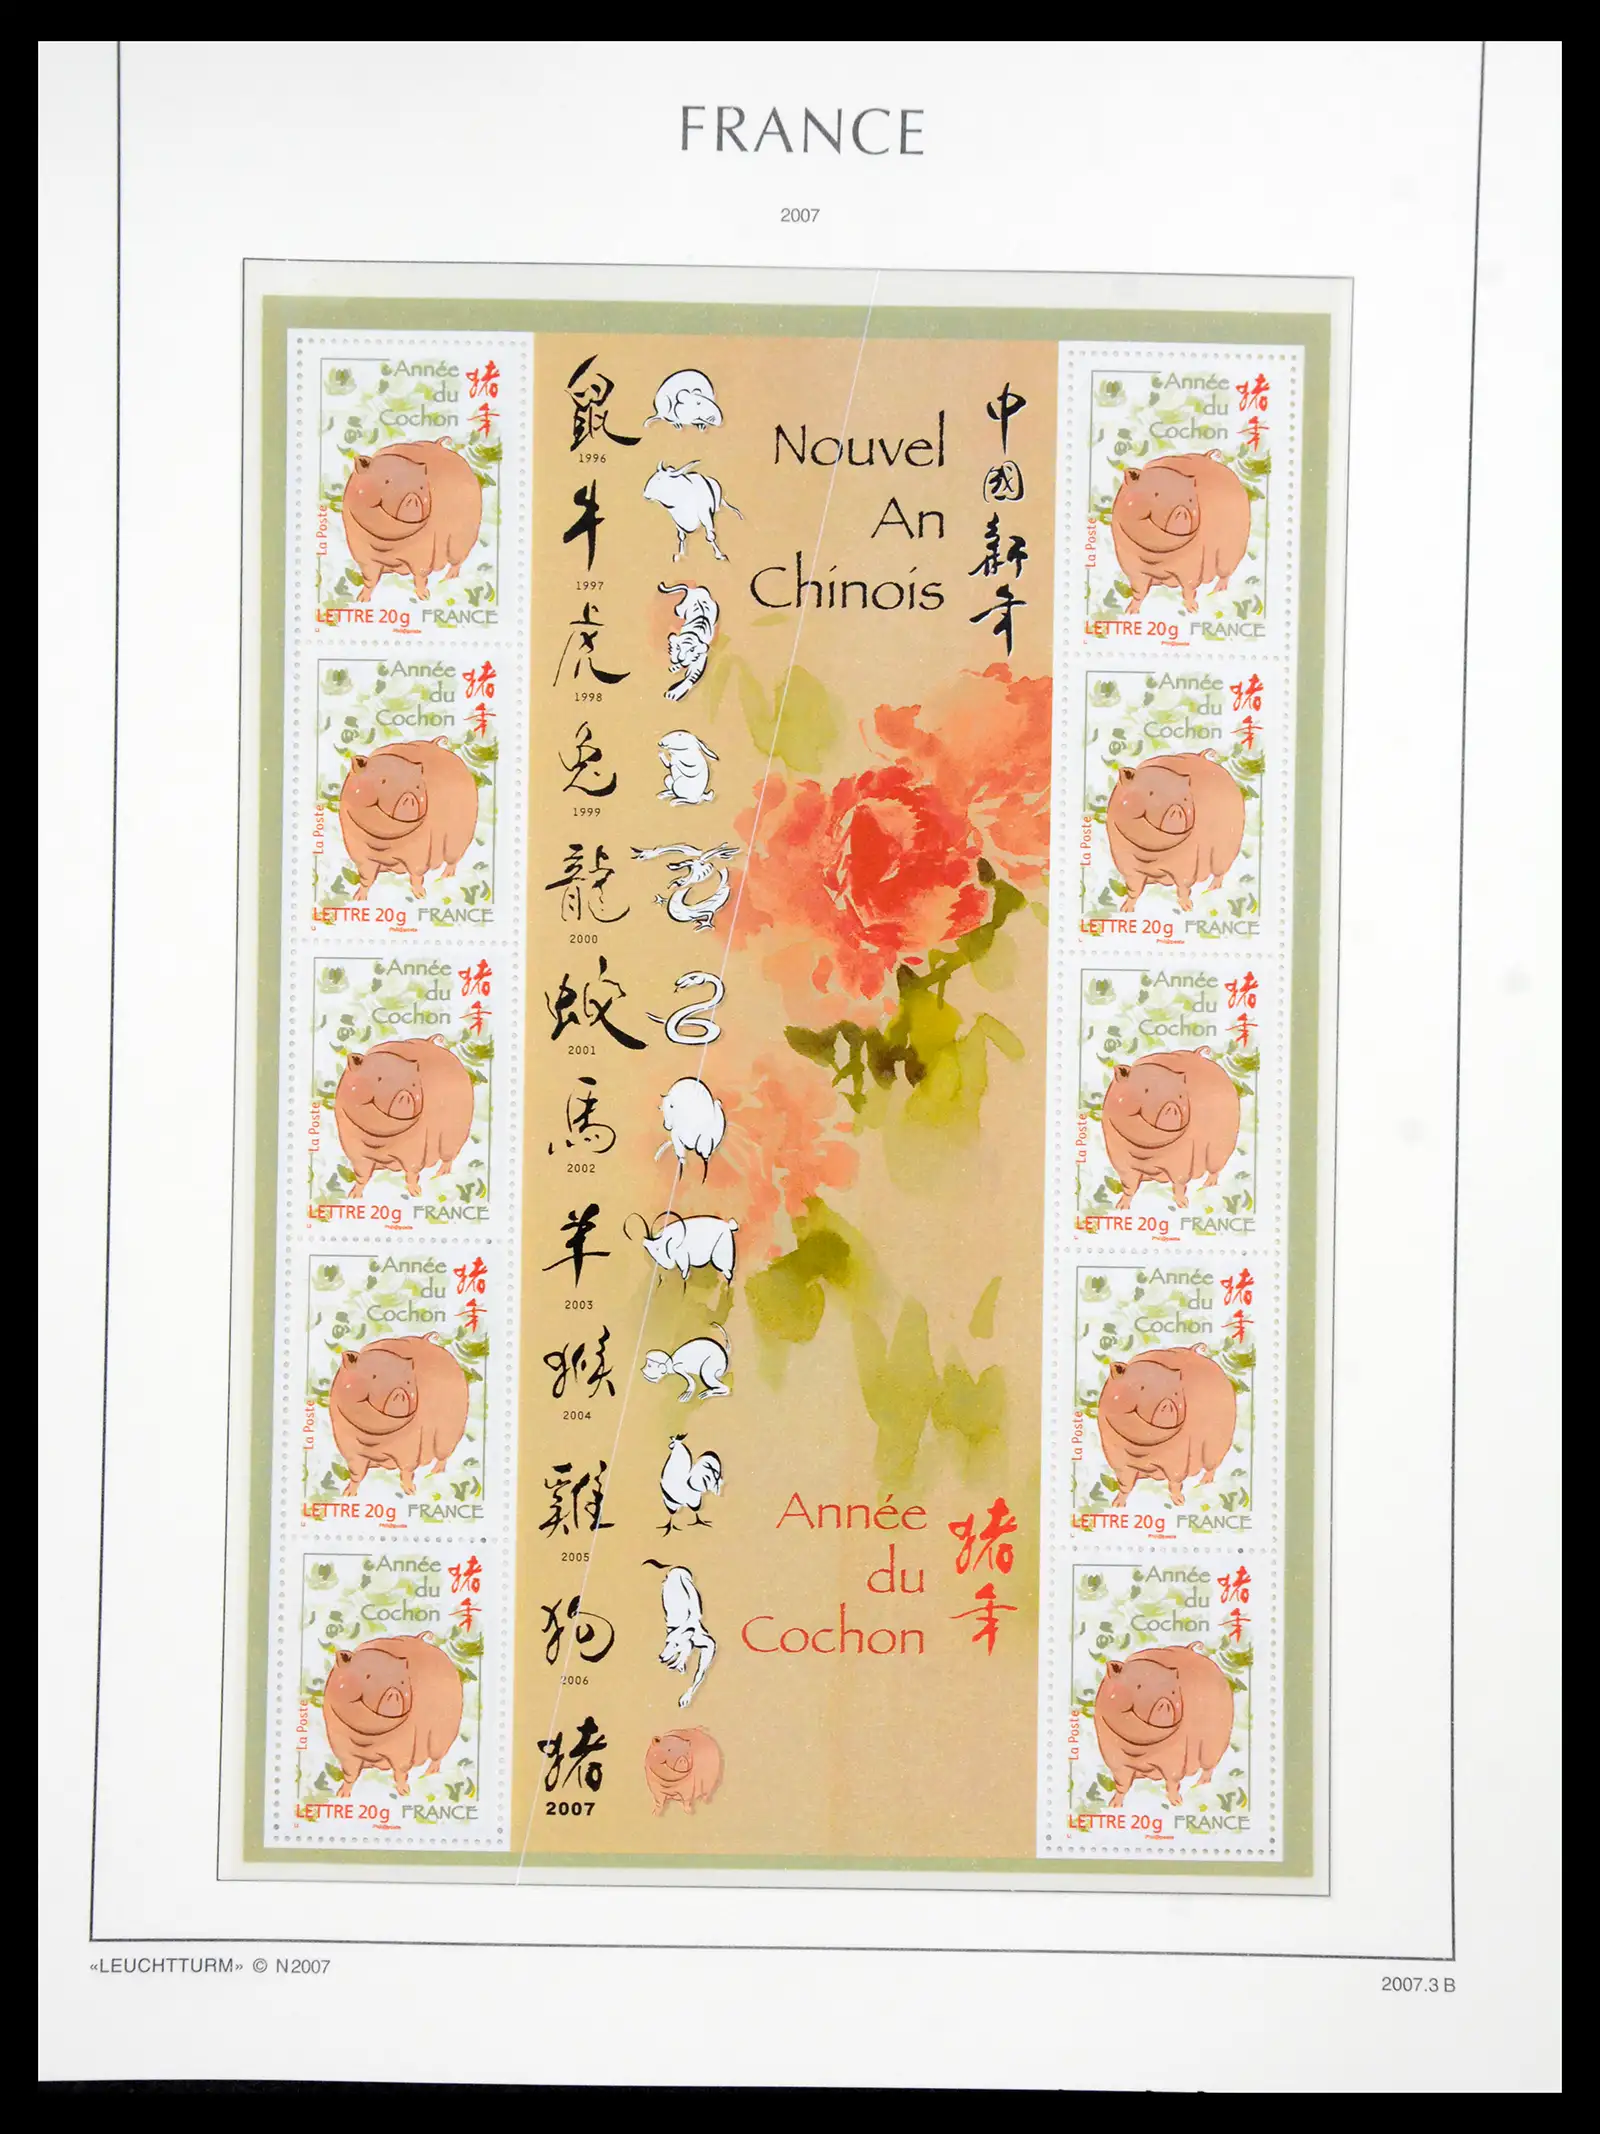 FRANCE
2007
Année
du
Cochon
猪年
La Poste
LETTRE 20g FRANCE
Phil@poste
Année
du
Cochon
猪年
La Poste
LETTRE 20g FRANCE
Phil@poste
Année
du
Cochon
猪年
La Poste
LETTRE 20g FRANCE
Phil@poste
Année
du
Cochon
猪年
La Poste
LETTRE 20g FRANCE
Phil@poste
Année
du
Cochon
猪年
La Poste
LETTRE 20g FRANCE
Phil@poste
鼠
1996
牛
1997
虎
1998
兔
1999
龍
2000
蛇
2001
馬
2002
羊
2003
猴
2004
雞
2005
狗
2006
猪
2007
Nouvel
An
Chinois
中國新年
Année
du
Cochon
猪年
Année
du
Cochon
猪年
La Poste
LETTRE 20g FRANCE
Phil@poste
Année
du
Cochon
猪年
La Poste
LETTRE 20g FRANCE
Phil@poste
Année
du
Cochon
猪年
La Poste
LETTRE 20g FRANCE
Phil@poste
Année
du
Cochon
猪年
La Poste
LETTRE 20g FRANCE
Phil@poste
Année
du
Cochon
猪年
La Poste
LETTRE 20g FRANCE
Phil@poste
«LEUCHTTURM» © N2007
2007.3 B